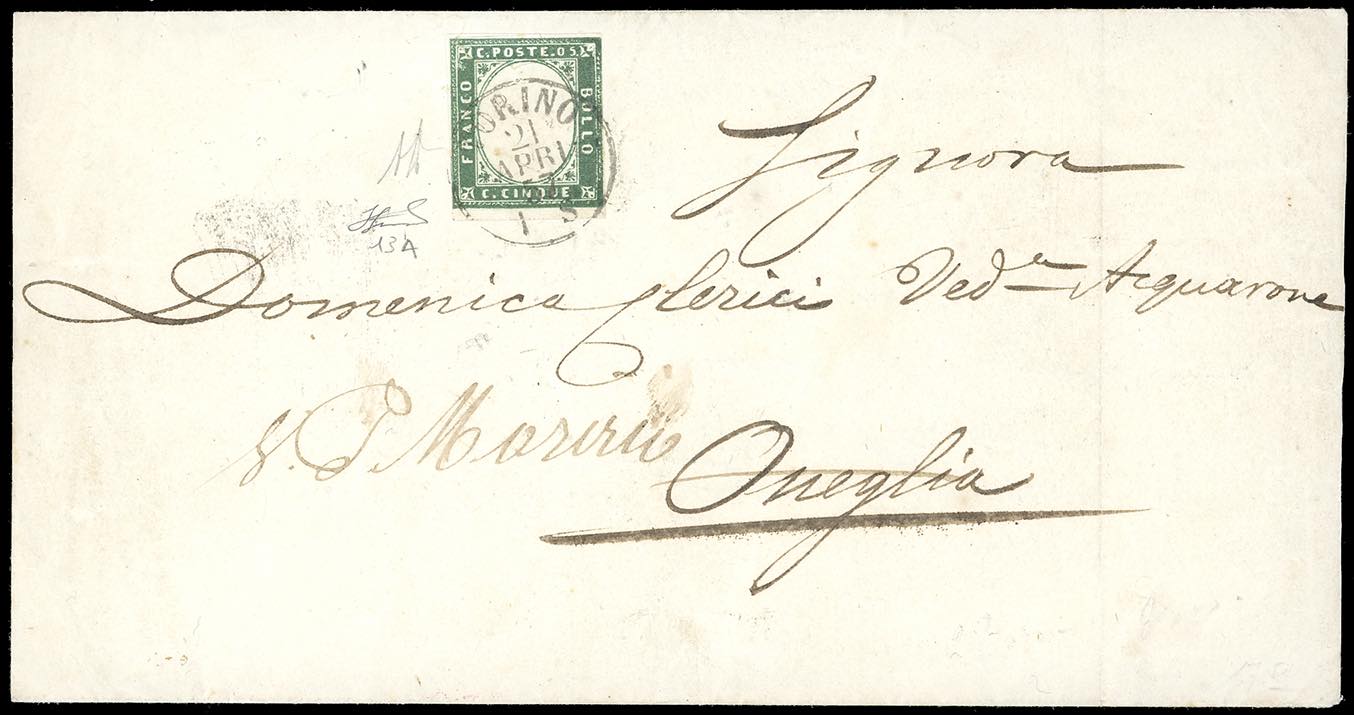 C. POSTE. 05
FRANCO
BOLLO
C. CINQUE
ORINO
21
APRI
1 S
13A
Signora
Domenica Clerici Ved.a Acquarone
Oneglia